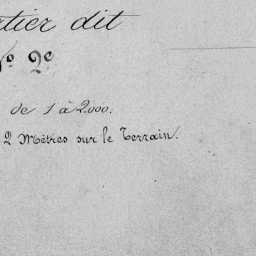 dit
№ 2e
de 1 à 2.000.
2 Mètres sur le Terrain.